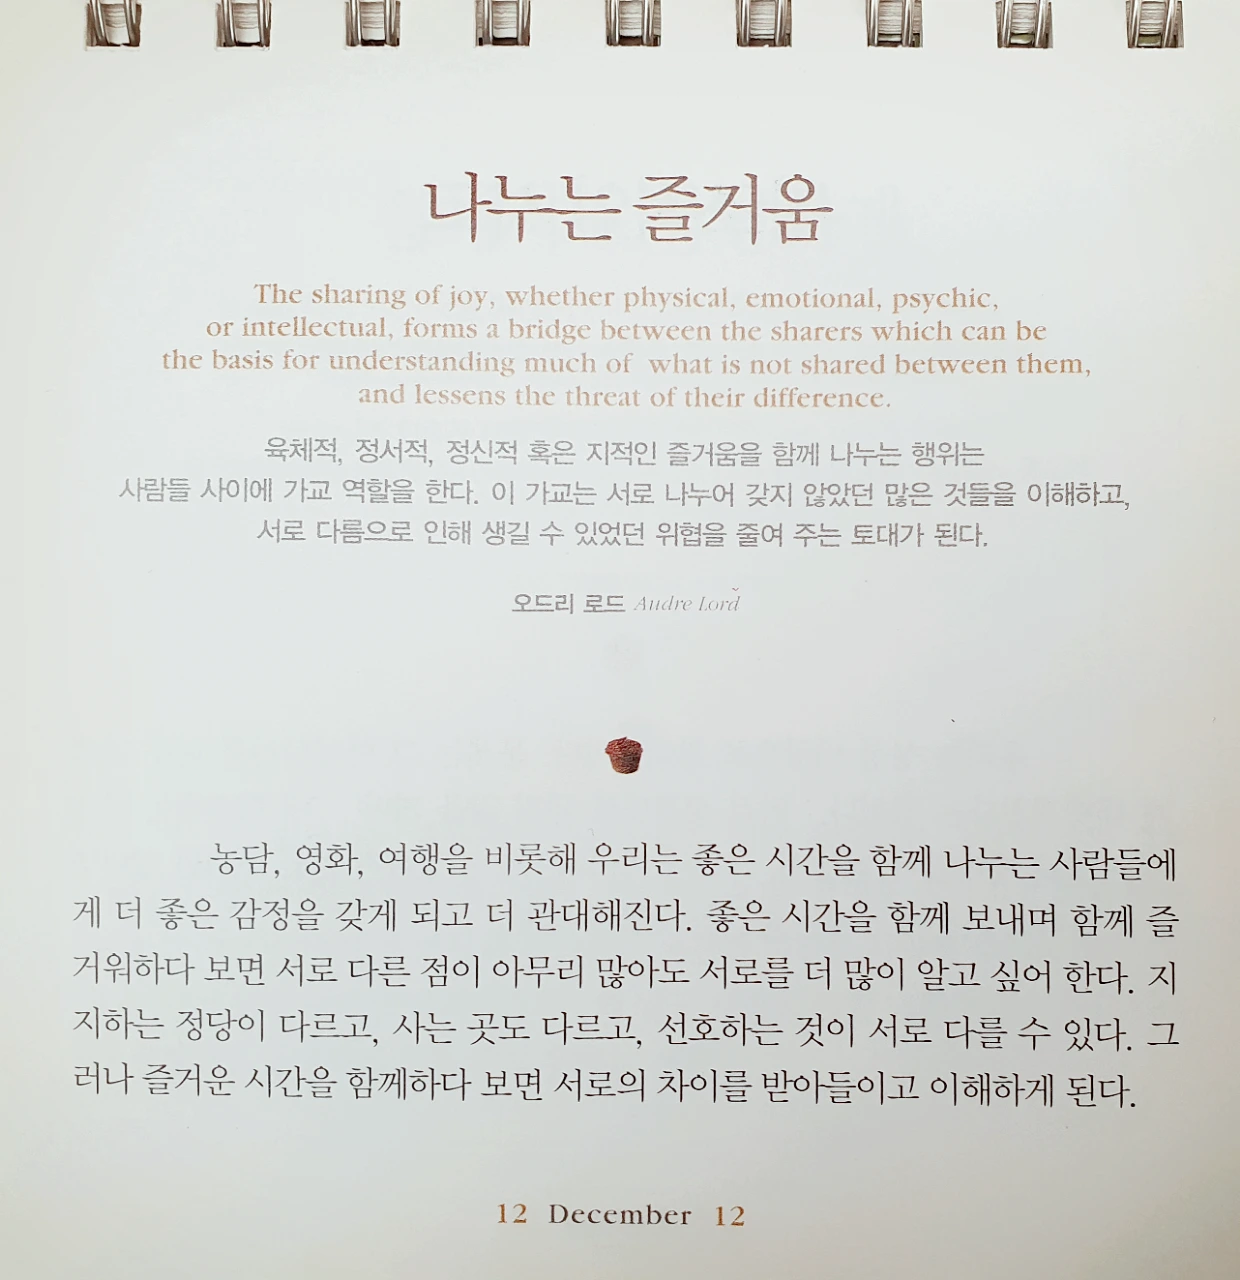 나누는 즐거움
The sharing of joy, whether physical, emotional, psychic,
or intellectual, forms a bridge between the sharers which can be
the basis for understanding much of what is not shared between them,
and lessens the threat of their difference.
육체적, 정서적, 정신적 혹은 지적인 즐거움을 함께 나누는 행위는
사람들 사이에 가교 역할을 한다. 이 가교는 서로 나누어 갖지 않았던 많은 것들을 이해하고,
서로 다름으로 인해 생길 수 있었던 위협을 줄여 주는 토대가 된다.
오드리 로드 Audre Lord
농담, 영화, 여행을 비롯해 우리는 좋은 시간을 함께 나누는 사람들에
게 더 좋은 감정을 갖게 되고 더 관대해진다. 좋은 시간을 함께 보내며 함께 즐
거워하다 보면 서로 다른 점이 아무리 많아도 서로를 더 많이 알고 싶어 한다. 지
지하는 정당이 다르고, 사는 곳도 다르고, 선호하는 것이 서로 다를 수 있다. 그
러나 즐거운 시간을 함께하다 보면 서로의 차이를 받아들이고 이해하게 된다.
12 December 12